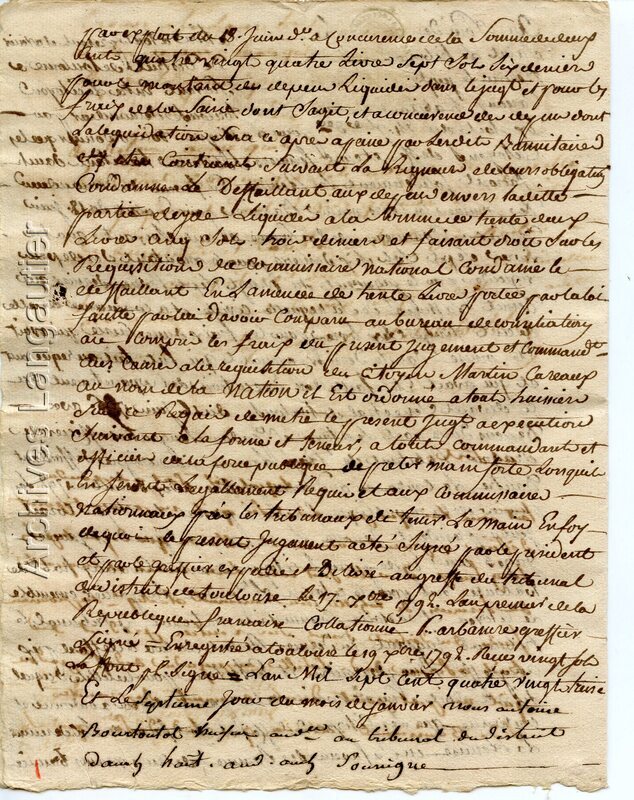 par exploit du 18 Juin d. a Concurrence de la Somme de deux
Cent quatre vingt quatre Livre Sept Sols Six denier
pour le montant des depens Liquides dans le jugt et pour les
fraix de la Saisie dont Sagit et a concurrence des depens dont
La liquidation Sera cy apres a faire par Ledit
Suivant La Rigueur de leurs obligations
Condamne Le Deffaillant aux depens envers ladite
partie Liquidés a la Somme de trente deux
Livres cinq Sols trois deniers et faisant droit Sur les
Requisition du Commissaire National Condamne le
deffaillant En Lamende de trente Livres portée par la loi
faute par lui davoir Comparu au bureau de conciliation
les fraix du present Jugement et Command.t
a la requisition du Citoyen Martin Careaux
au nom de la Nation il Est ordonné a tout huissier
Sur ce Requis de metre le present Jugt a execution
Suivant Sa forme et teneur, a tout commandant et
officier de la force publique de preter main forte Lorsquil
En Seront Legallement Requis et aux Commissaire
Nationnaux pres les tribunaux dy tenir La main En foy
de quoi le present Jugement a eté Signé par le president
et par le greffier expedié et Delivré au greffe du tribunal
du district de toulouse le 17. xbre 1792. L'an premier de la
Republique francaise Collationné greffier
Signé = Enregistré a toulouse le 19 xbre 1792. Reçu vingt sols
Laffont Signé = L'an Mil Sept Cent quatre vingt treise
Et Le Septieme Jour du mois de janvier nous antoine
au tribunal du district
dauch hant. aud. auch Soussigné
Archives Largautier